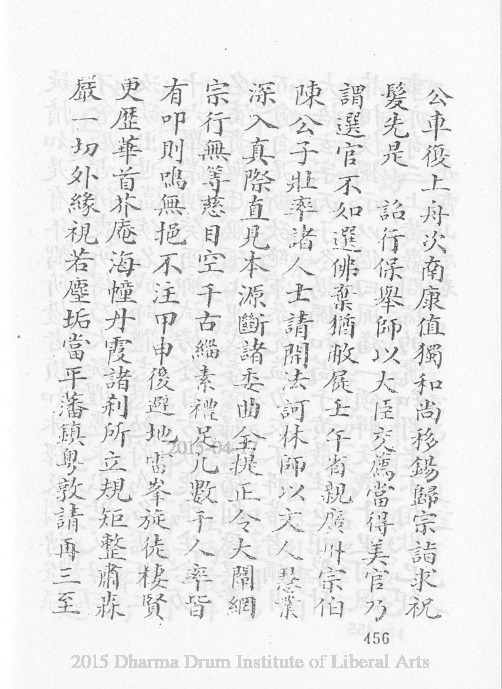 公車復上舟次南康值獨和尚移錫歸宗詣求祝
髮先是 詔行保舉師以大臣交薦當得美官乃
謂選官不如選佛棄猶敝屣壬午省親廣州宗伯
陳公子壯率諸人士請開法訶林師以文人慧業
深入真際直見本源斷諸委曲全提正令大闡綱
宗行無等慈目空千古緇素禮足凡數千人率皆
有叩則鳴無挹不注甲申後避地雷峯旋徙棲賢
更歷華首芥庵海幢丹霞諸刹所立規矩整肅森
嚴一切外緣視若塵垢當平藩鎮粵敦請再三至
456
2015-04
2015 Dharma Drum Institute of Liberal Arts